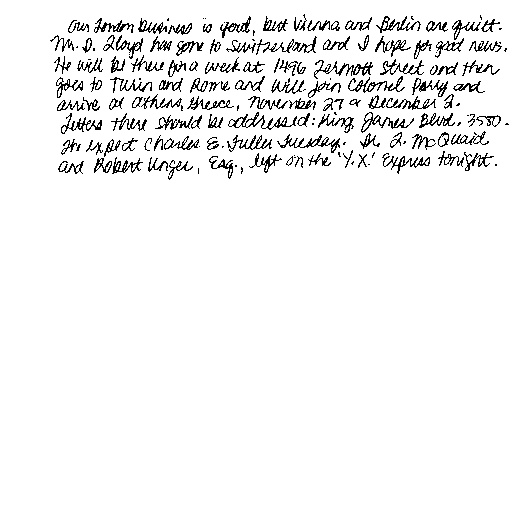 Our London business is good, but Vienna and Berlin are quiet.
Mr. D. Lloyd has gone to Switzerland and I hope for good news.
He will be there for a week at 1496 Zermott Street and then
goes to Turin and Rome and will join Colonel Parry and
arrive at Athens, Greece, November 27 or December 2.
Letters there should be addressed: King James Blvd. 3580.
We expect Charles E. Fuller Tuesday. Dr. L. McQuaid
and Robert Unger, Esq., left on the 'Y.X.' Express tonight.